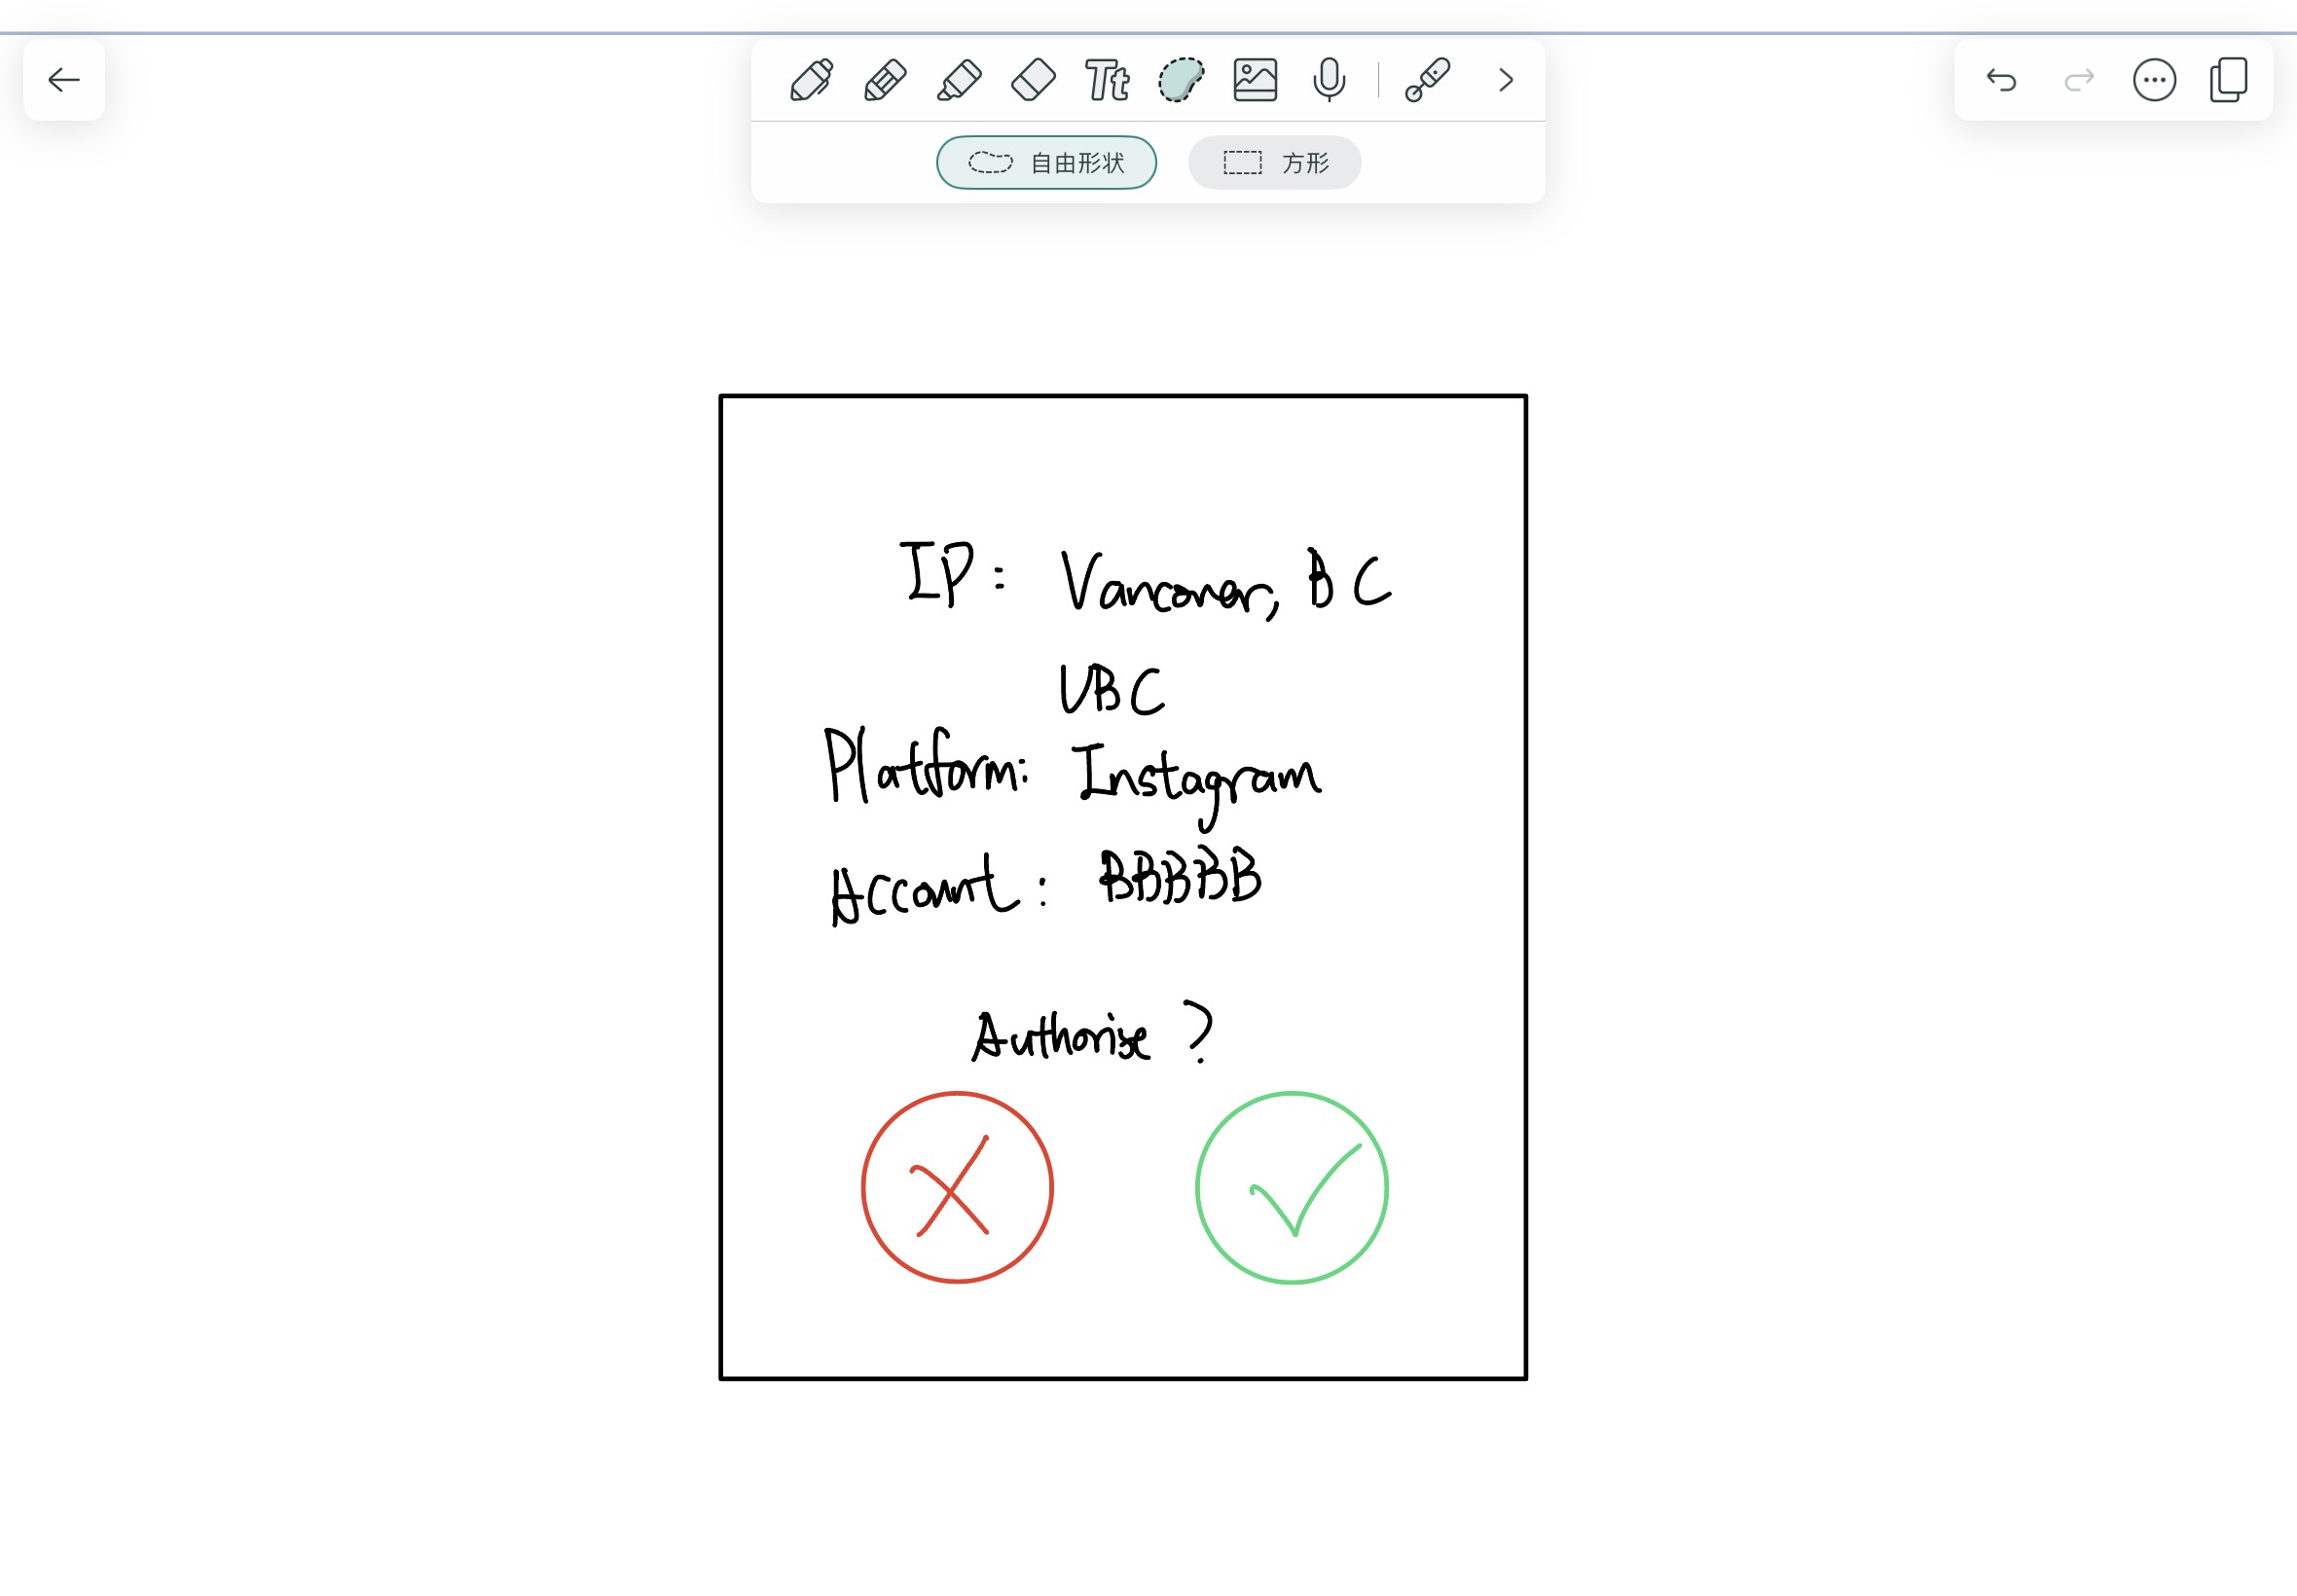 Tt
自由形状 方形
IP: Vancouver, BC
UBC
Platform: Instagram
Account: BBBBB
Authorise ?